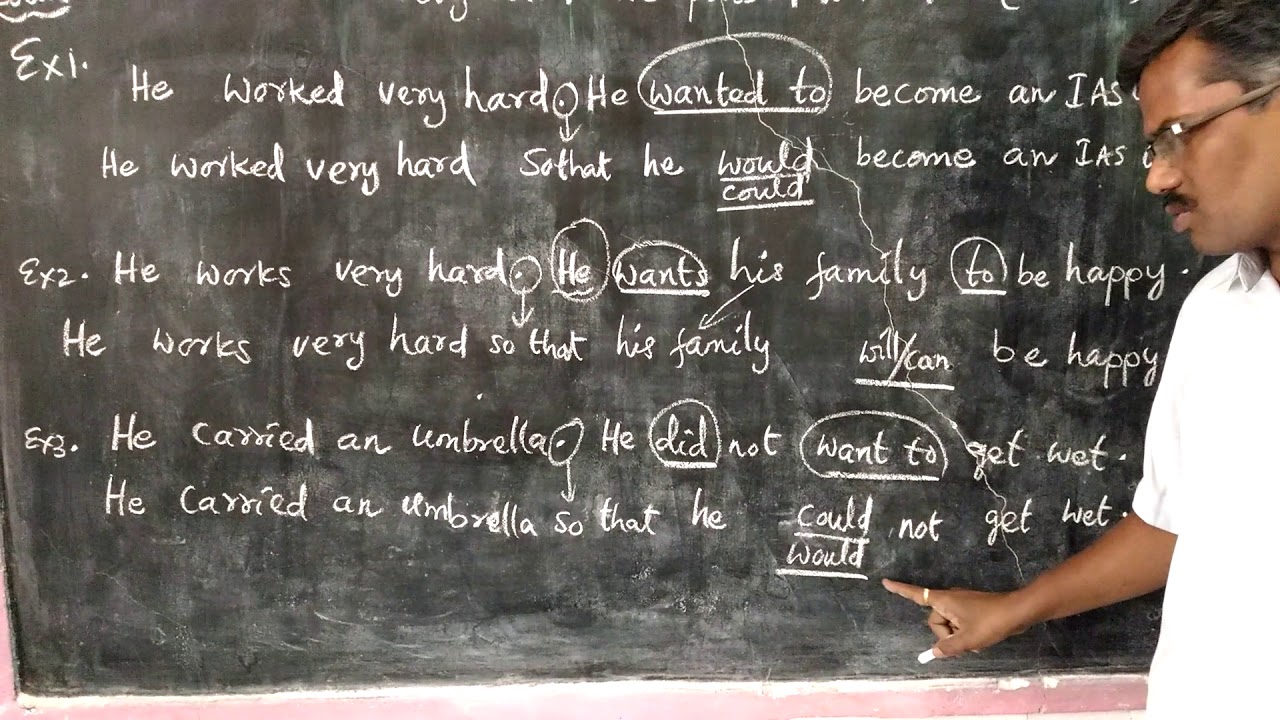 Ex1. He worked very hard. He wanted to become an IAS
He worked very hard so that he would become an IAS
could
Ex2. He works very hard. He wants his family to be happy.
He works very hard so that his family will/can be happy
Ex3. He carried an umbrella. He did not want to get wet.
He carried an umbrella so that he could not get wet.
would